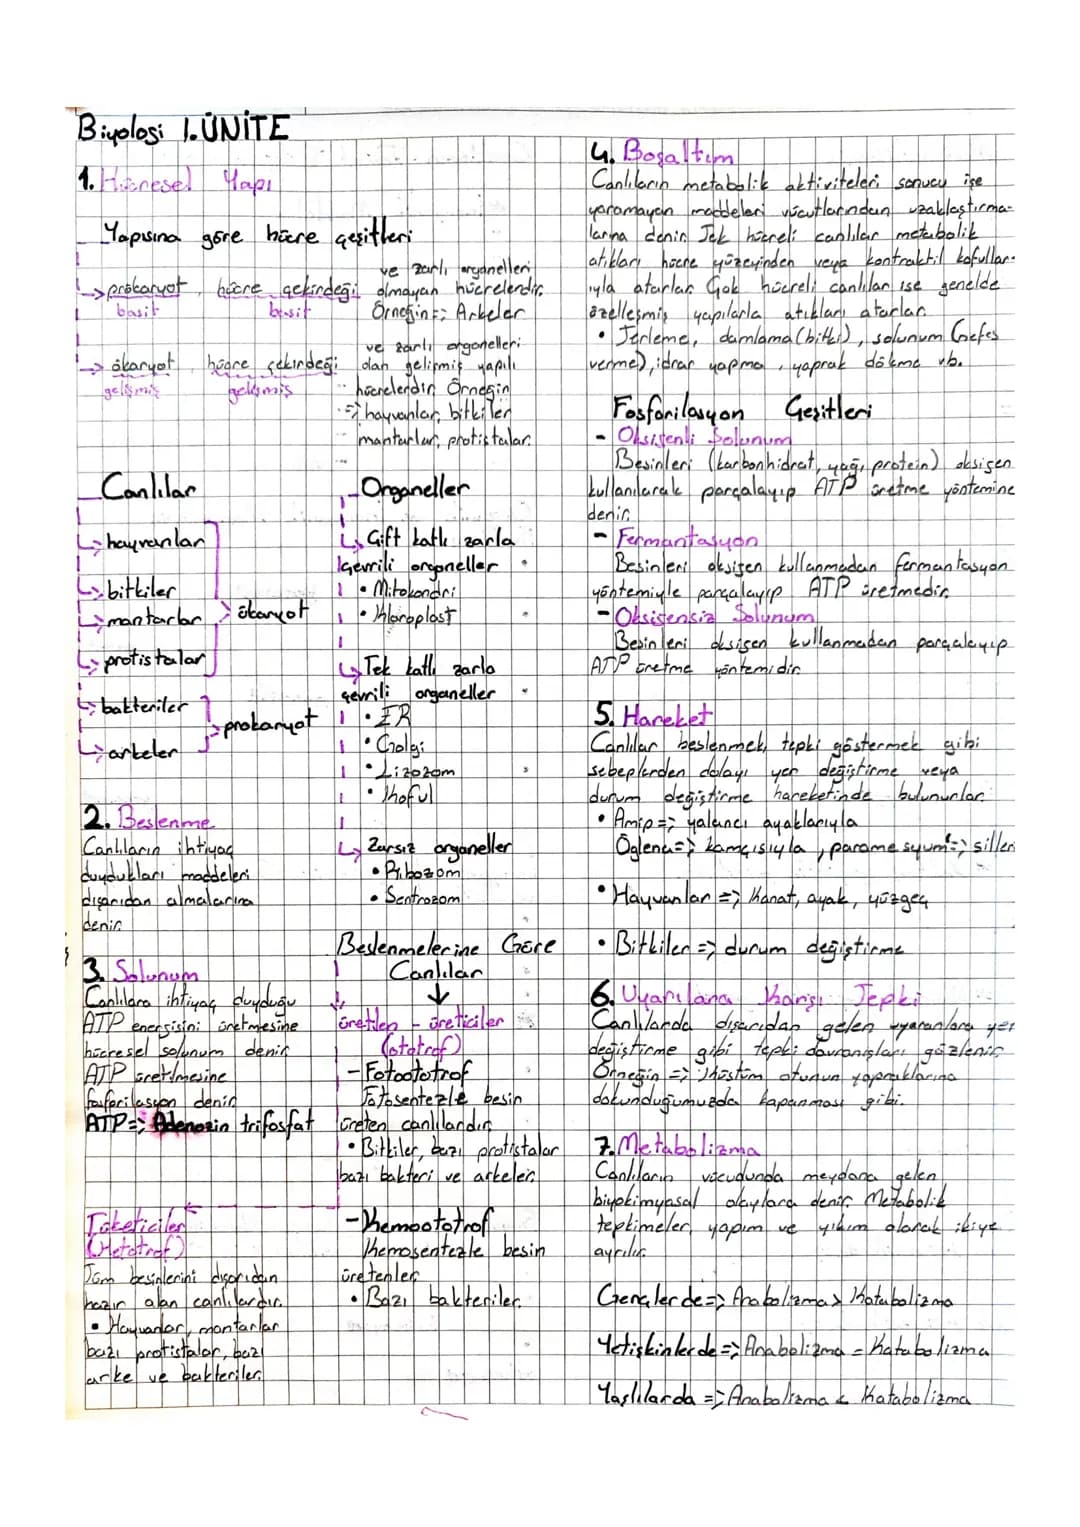 Biyoloji 1.ÜNİTE
1. Hücresel Yapı
Yapısına göre hücre çeşitleri
prokaryot, hücre çekirdeği ve zarlı organelleri
basit basit
olmayan hücrelerdir.
Örneğin => Arkeler
ökaryot, hücre çekirdeği ve zarlı organelleri
gelişmiş gelişmiş
olan gelişmiş yapılı
hücrelerdir. Örneğin
=> hayvanlar, bitkiler
mantarlar, protistalar.
Canlılar
hayvanlar
bitkiler
mantarlar
protistalar
ökaryot
bakteriler
arkeler
prokaryot
Organeller
Çift katlı zarla
çevrili organeller
• Mitokondri
• Kloroplast
Tek katlı zarla
çevrili organeller
• ER
• Golgi
• Lizozom
• Koful
Zarsız organeller
• Ribozom
• Sentrozom
2. Beslenme
Canlıların ihtiyaç
duydukları maddeleri
dışarıdan almalarına
denir.
3. Solunum
Canlılara ihtiyaç duyduğu
ATP energisini üretmesine
hücresel solunum denir.
ATP üretilmesine
fosforilasyon denir
ATP => Adenozin trifosfat
Beslenmelerine Göre
Canlılar
üretilen - üreticiler
(ototrof)
- Fotoototrof
Fotosentezle besin
üreten canlılardır.
• Bitkiler, bazı protistalar
bazı bakteri ve arkeler.
- Kemoototrof
Kemosentezle besin
üretenler.
• Bazı bakteriler.
Tüketiciler
(Hetotrof)
Tüm besinlerini dışarıdan
hazır alan canlılardır.
• Hayvanlar, mantarlar
bazı protistalar, bazı
arke ve bakteriler.
4. Boşaltım
Canlıların metabolik aktiviteleri sonucu işe
yaramayan maddeleri vücutlarından uzaklaştırma-
larına denir. Tek hücreli canlılar metabolik
atıkları hücre yüzeyinden veya kontraktil kofullar-
ıyla atarlar. Çok hücreli canlılar ise genelde
özelleşmiş yapılarla atıkları atarlar.
• Terleme, damlama (bitki), solunum (nefes
verme), idrar yapma, yaprak dökme vb.
Fosforilasyon Çeşitleri
- Oksijenli Solunum
Besinleri (karbonhidrat, yağ, protein) oksijen
kullanılarak parçalayıp ATP üretme yöntemine
denir.
- Fermantasyon
Besinleri oksijen kullanmadan fermantasyon
yöntemiyle parçalayıp ATP üretmedir.
- Oksijensiz Solunum
Besinleri oksijen kullanmadan parçalayıp
ATP üretme yöntemidir.
5. Hareket
Canlılar beslenmek, tepki göstermek gibi
sebeplerden dolayı yer değiştirme veya
durum değiştirme hareketinde bulunurlar.
• Amip => yalancı ayaklarıyla
Öglena => kamçısıyla, paramesyum => silleri
• Hayvanlar => Kanat, ayak, yüzgeç
• Bitkiler => durum değiştirme
6. Uyarılara Karşı Tepki
Canlılarda dışarıdan gelen uyaranlara yer
değiştirme gibi tepki davranışları gözlenir.
Örneğin => Küstüm otunun yapraklarına
dokunduğumuzda kapanması gibi.
7. Metabolizma
Canlıların vücudunda meydana gelen
biyokimyasal olaylara denir. Metabolik
tepkimeler, yapım ve yıkım olarak ikiye
ayrılır.
Gençlerde => Anabolizma > Katabolizma
Yetişkinlerde => Anabolizma = Katabolizma
Yaşlılarda => Anabolizma < Katabolizma